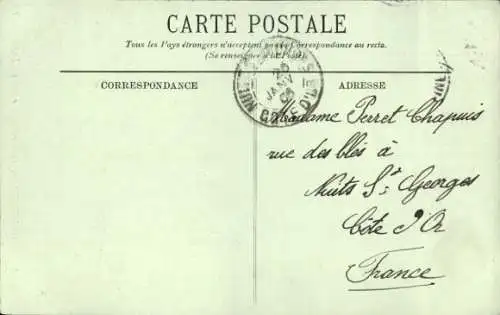 CARTE POSTALE
Tous les Pays étrangers n'acceptent pas de Correspondance au recto.
(Se renseigner à la Poste).
CORRESPONDANCE
ADRESSE
NUITS
JANV
CÔTE D'OR
Madame Perret Chapuis
rue des blés à
Nuits St. Georges
Côte d'Or
France